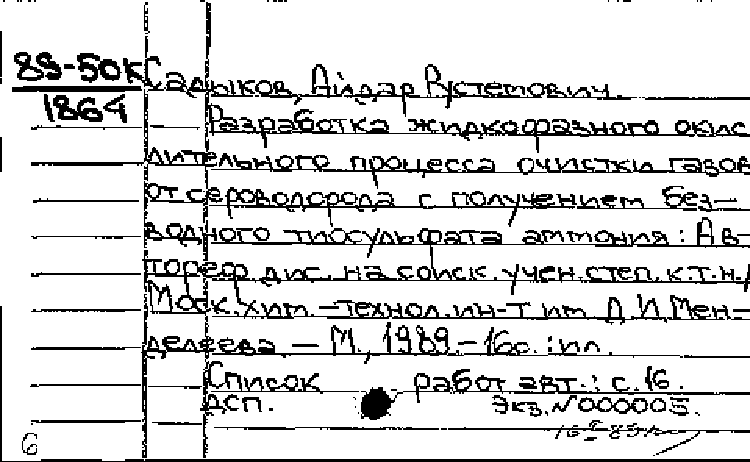 89-50к
1864
Садыков, Айдар Рустемович.
Разработка жидкофазного окис
лительного процесса очистки газов
от сероводорода с получением без-
водного тиосульфата аммония: Ав-
тореф. дис. на соиск. учен. степ. к.т.н./
Моск. хим.-технол. ин-т им. Д.И. Мен-
делеева. - М., 1989. - 16с.: ил.
Список работ авт.: с. 16.
ДСП. Экз. №000005.
6